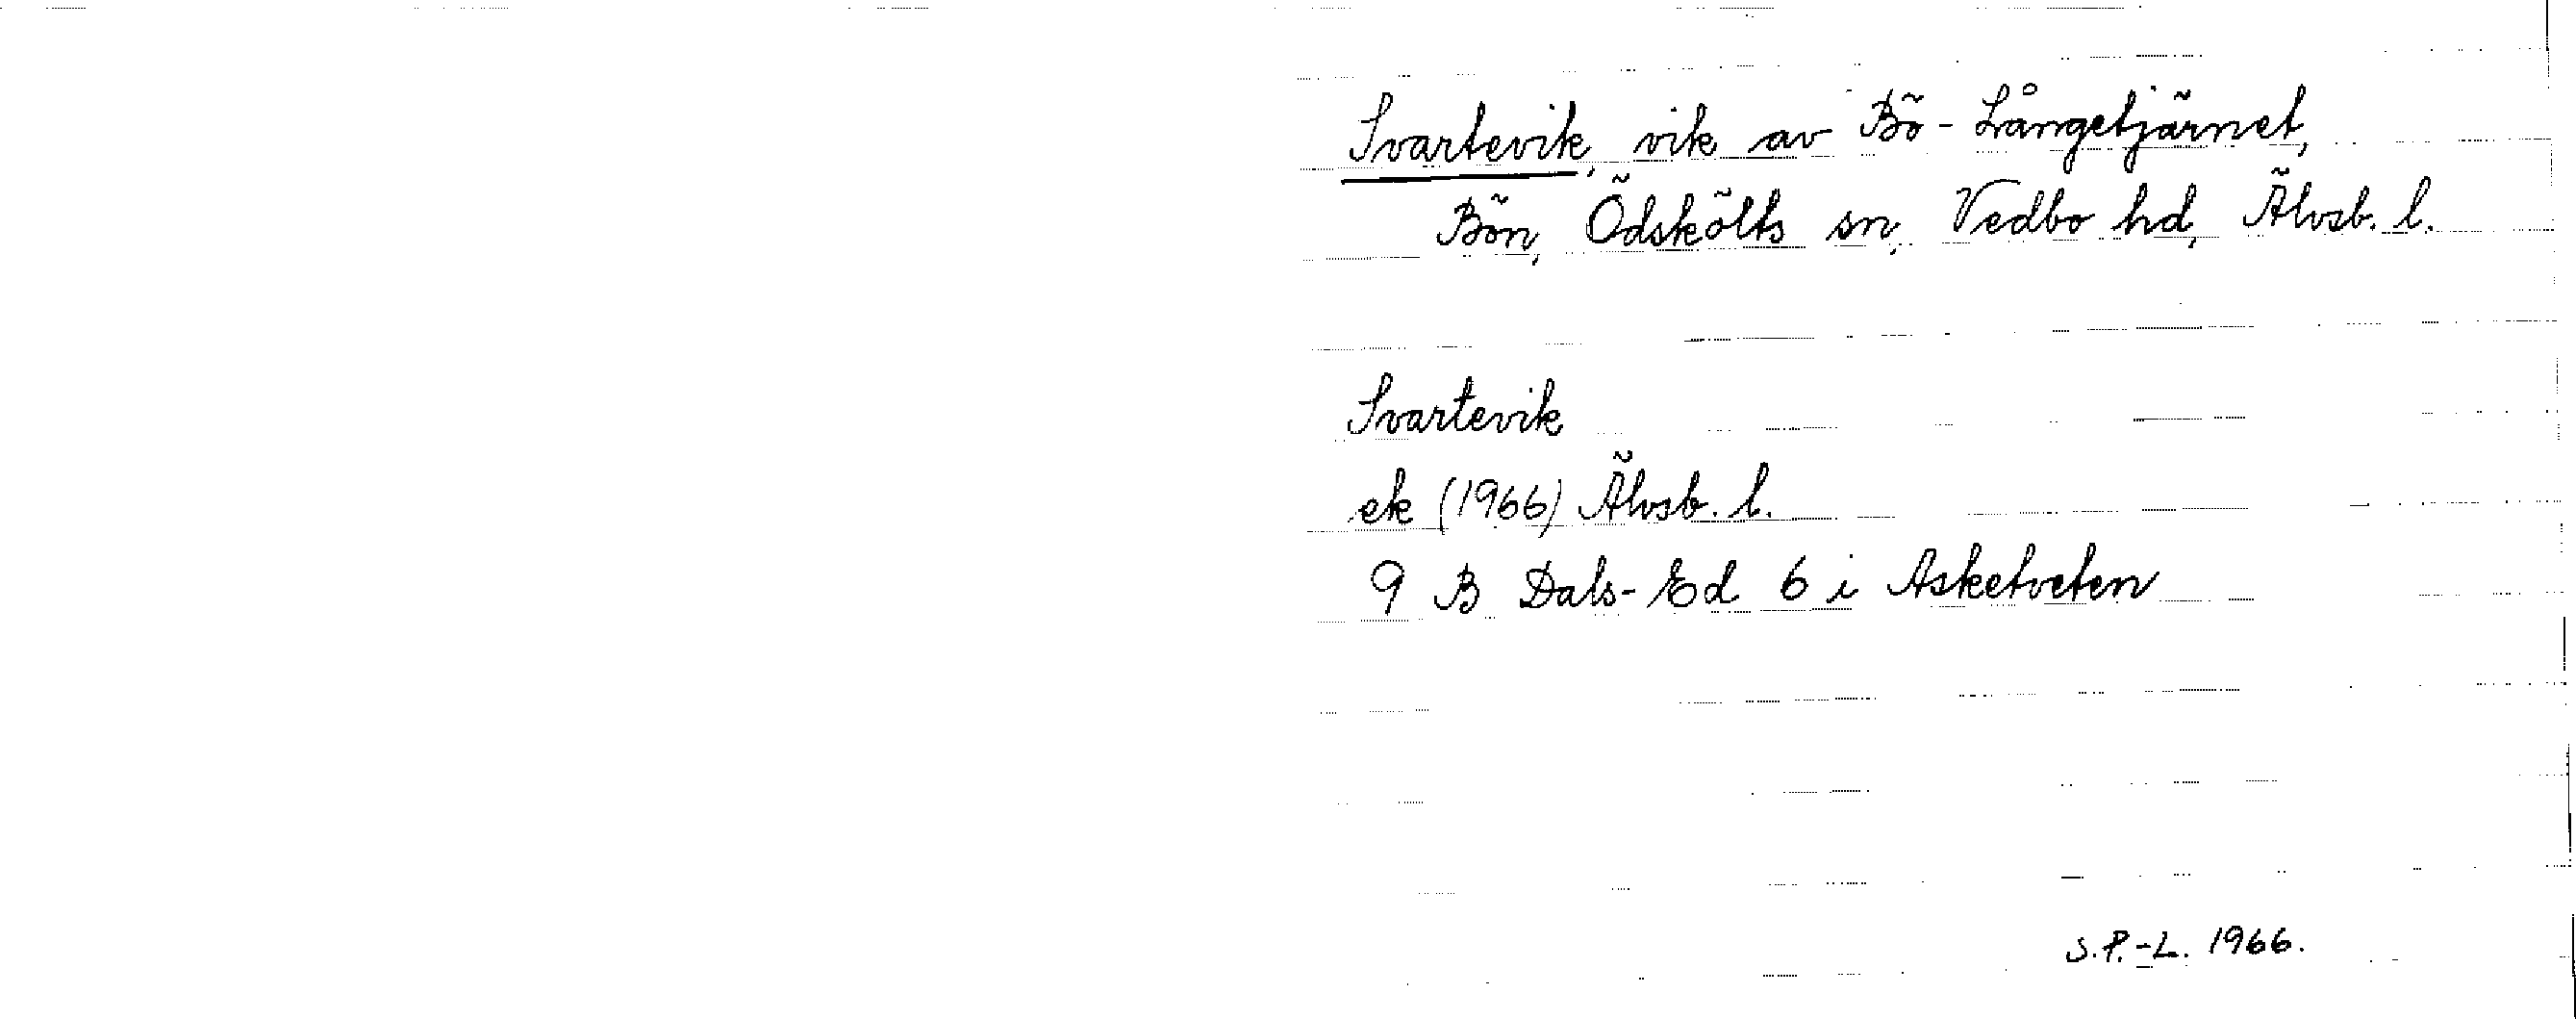 Svartevik, vik av Bö-Långetjärnet,
Bön, Ödskölts sn, Vedbo hd, Älvsb. l.
Svartevik
ek (1966) Älvsb. l.
9 B Dals-Ed 6 i Asketveten
S.P.-L. 1966.